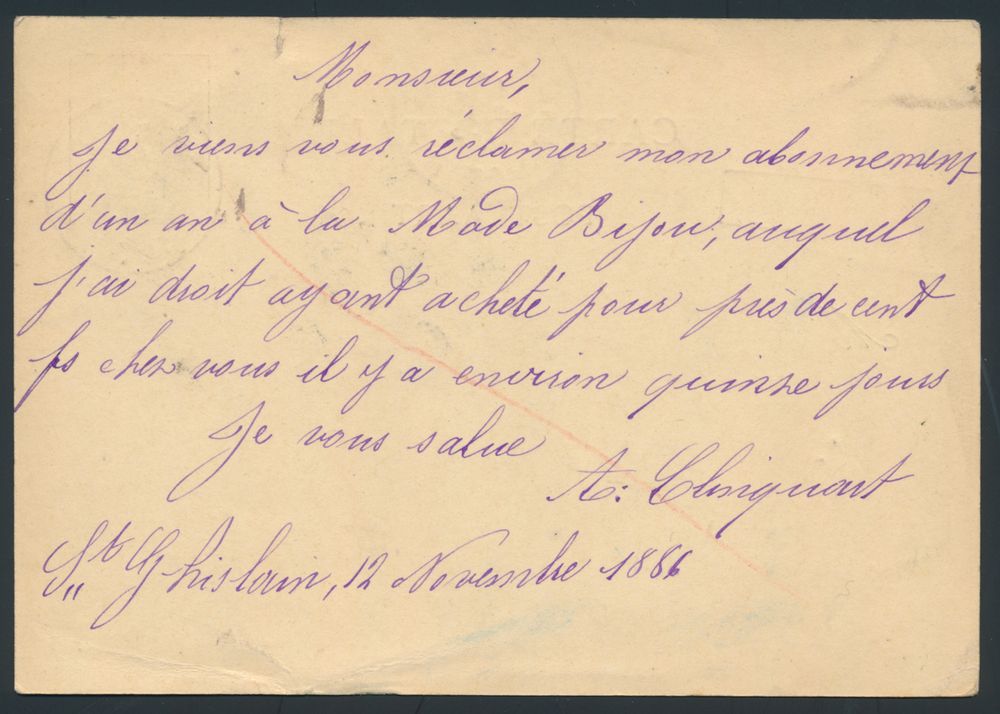 Monsieur,
Je viens vous réclamer mon abonnement
d'un an à la Mode Bijou, auquel
j'ai droit ayant acheté pour près de cent
fs chez vous il y a environ quinze jours
Je vous salue
A. Clinquart
St Ghislain, 12 Novembre 1886